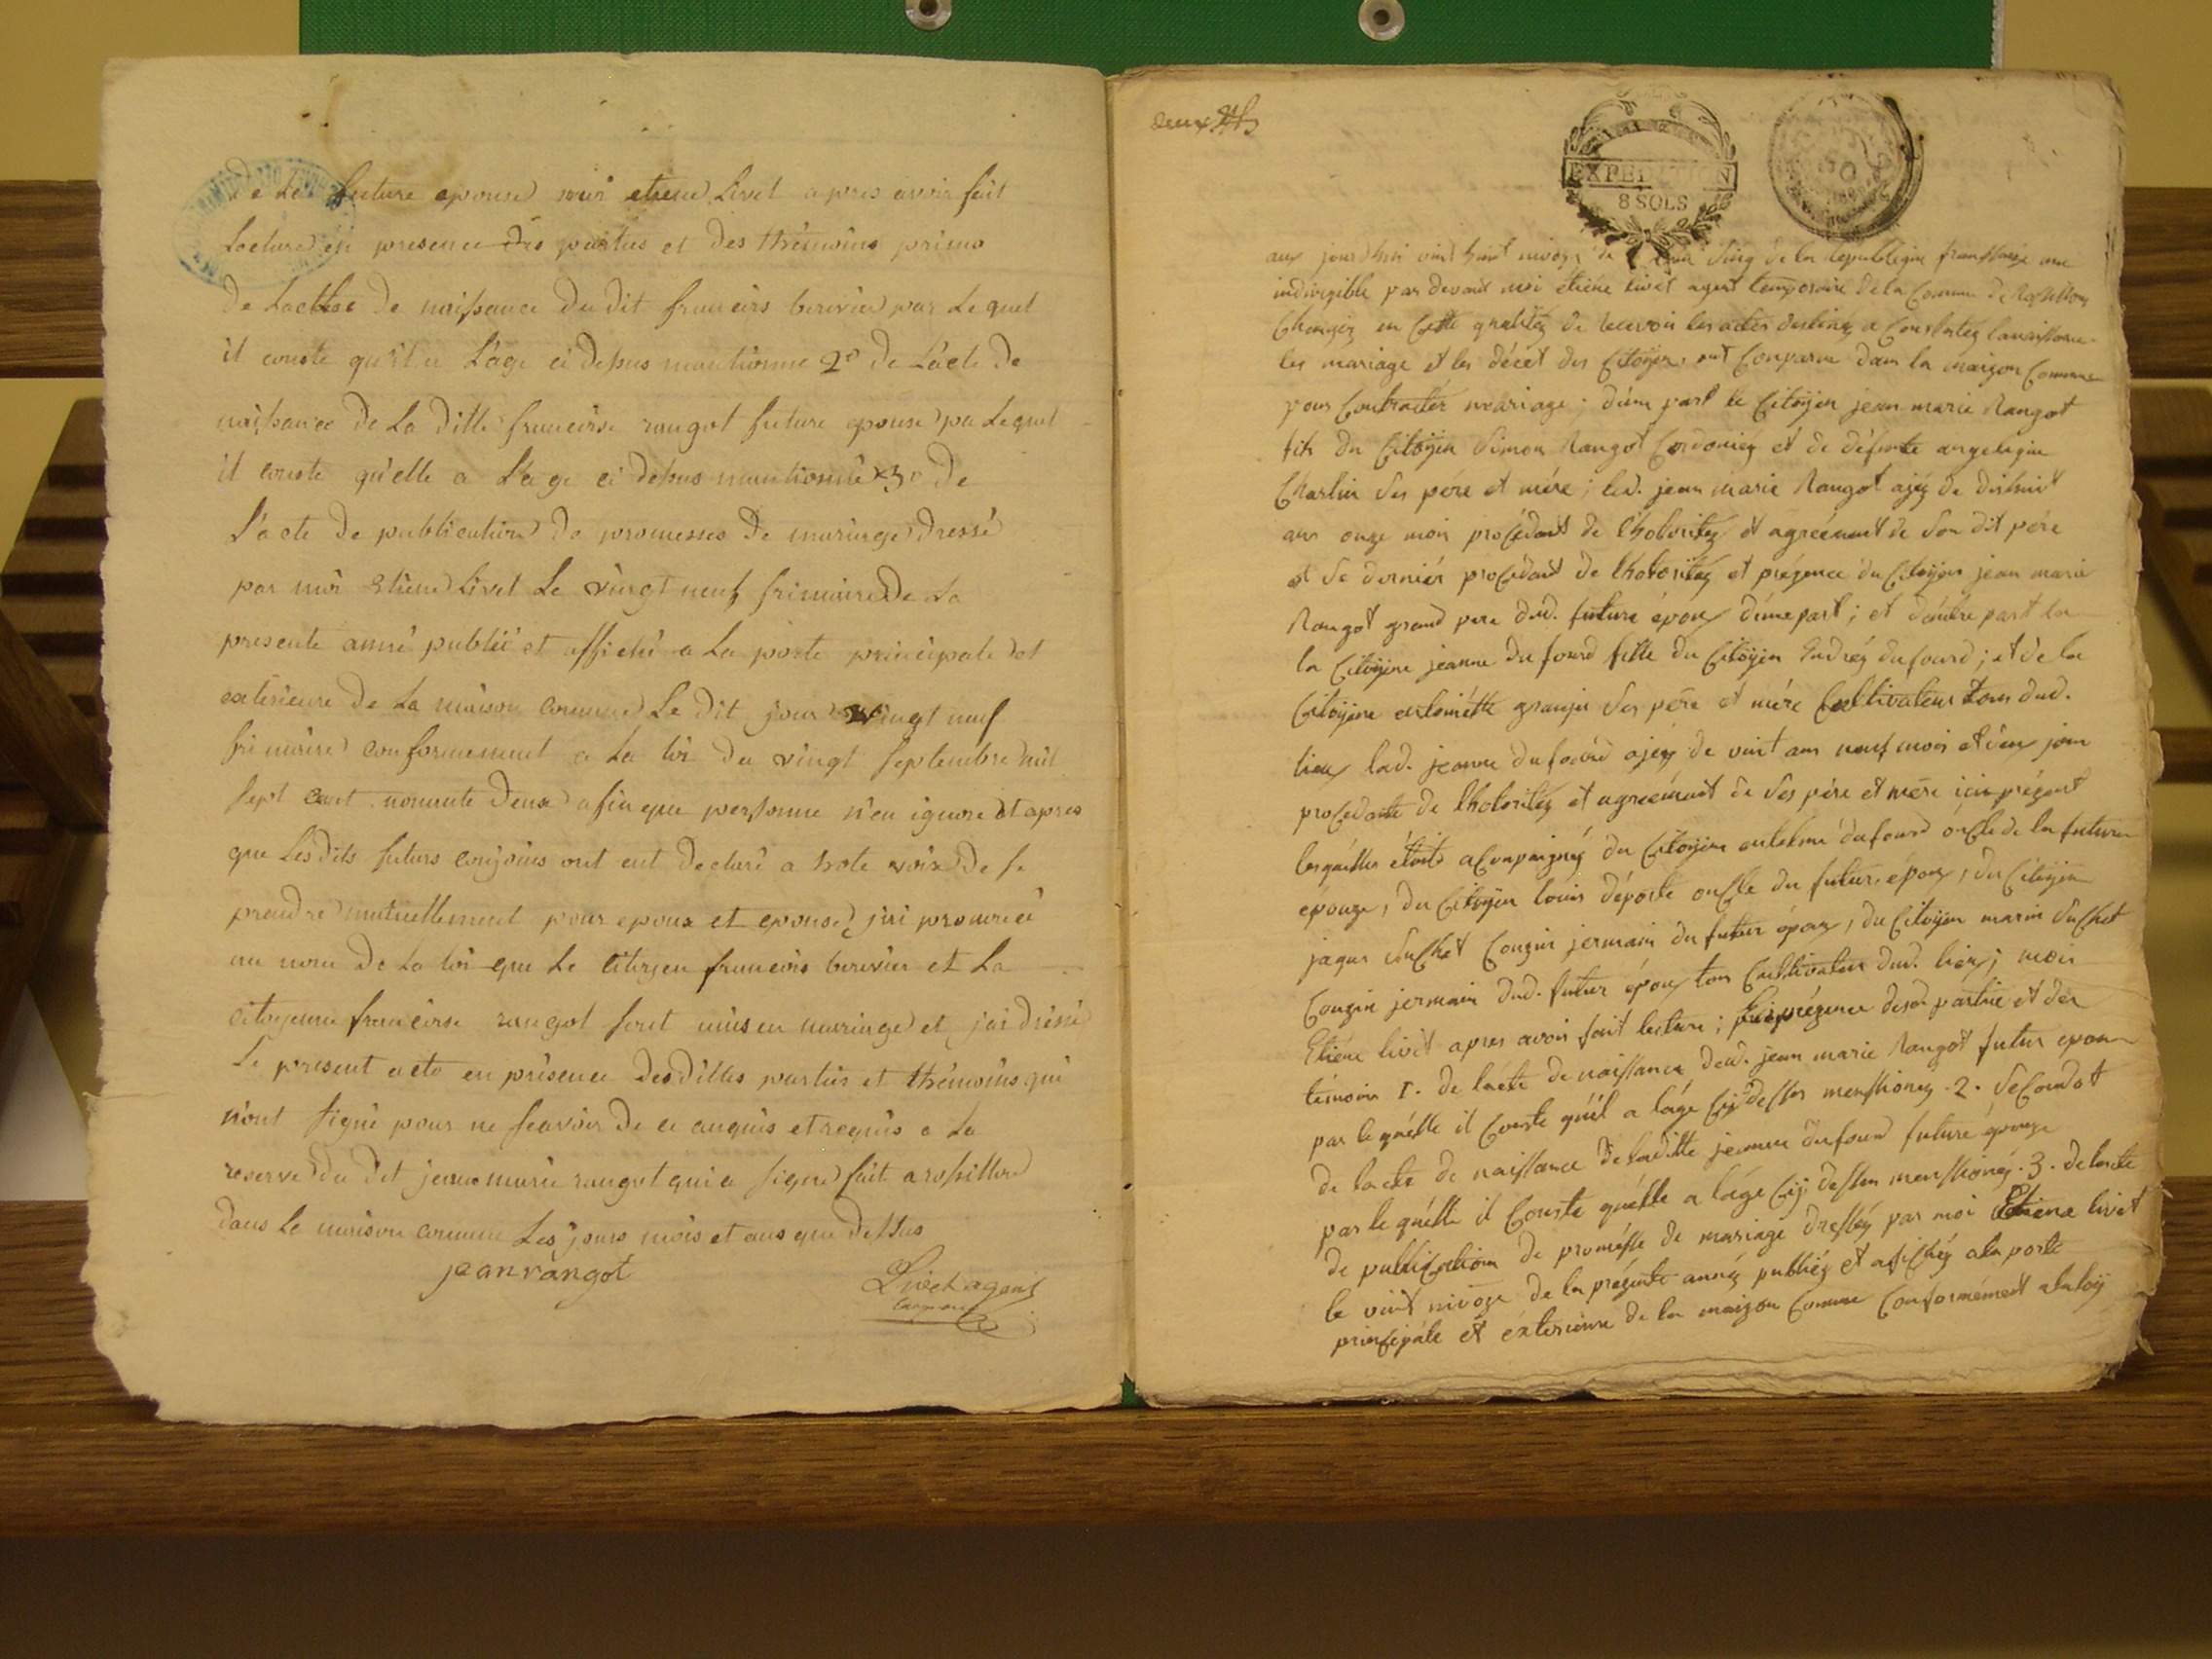 de La future epouse moi etiene Livet apres avoir fait
Lecture en presence des parties et des thémoins primo
de Lactte de naissance du dit francois berivier par Lequel
il conste qu'il a L'age ci dessus mantionné 2º de L'acte de
naissance de La ditte francoise rangot future epouse par Lequel
il conste qu'elle a L'age ci dessus mantionné 3º de
L'acte de publication de promesses de mariage dressé
par moi etiene Livet Le vingt neuf frimaire de La
presente anné publié et affiché a La porte principale et
exterieure de La maison comune Le dit jour vingt neuf
frimaire conformement a La loi du vingt septembre mil
sept cent nonante deux afin que personne n'en ignore et apres
que Lesdits futurs conjoins ont eut declaré a hote voix de se
prendre mutuellement pour epoux et epouse j'ai prononcé
au nom de La loi que Le citoyen francois berivier et La
citoyenne francoise rangot sont unis en mariage et j'ai dressé
Le present acte en présence desdittes parties et thémoins qui
n'ont signé pour ne scavoir de ce enquis et requis a La
reserve du dit jean marie rangot qui a signé fait a rossillon
dans La maison comune Les jours mois et ans que dessus
jean rangot
Livet agent
deux
EXPEDITION
8 SOLS
aux jourdhui vint huit nivoze de sinq de la Republique franssaize une
indivizible par devant moi étiéne livet agent temporaire de la Comune de Rossillon
Chargéz en Cette qualitéz de recevoir les actes destinéz a Constatéz la naissance
les mariage et les décet des Citoÿen, ont Conparue dans la maizon Comune
pour Contractér mariage ; d'une part le Citoÿen jean marie Rangot
fils du Citoÿen Simon Rangot Cordoniéz et de défunte angelique
Charlin ses pére et mére ; led. jean marie Rangot ajéz de dishuit
ans onze mois procédant de l'hotoritéz et agreément de son dit pére
et se derniér procédant de lhotoritéz et prézence du Citoÿen jean marie
Rangot grand pere dud. future époux d'une part ; et d'autre part la
la Citoÿene jeanne dufourd fille du Citoÿen Andréz dufourd ; et de la
Citoÿene antoinétte granjin ses pére et mére Cultivateur tous dud.
lieux lad. jeanne dufourd ajéz de vint ans neuf mois et deux jour
procedante de lhotoritéz et agreément de ses pére et mere ici prézent
lesquélles étoit aConpaignéz du Citoÿen antelme dufourd oncle de la future
épouze, du Citoÿen louis déporte oncle du futur époux, du Citoÿen
jaque suchet Couzin jermain du futur époux, du Citoÿen marin suchet
Couzin jermain dud. futur époux tous Cultivateur dud. lieux ; moi
Etiéne livet apres avoir fait lecture ; prézence desd. partie et des
témoin 1. de lacte de naissance dud. jean marie Rangot futur epoux
par lequélle il Conste qu'il a láge Cÿ dessus menssionéz . 2. seCondot
de lacte de naissance de laditte jeanne dufourd future épouze
par lequélle il Conste quélle a láge Cÿ dessus menssionéz . 3. de lacte
de publiCation de promésse de mariage dresséz par moi Etiene livet
le vint nivoze de la prézente annéz publiéz et afichéz ala porte
prinCipale et éxterieure de la maizon Comune Conformément ala loÿ